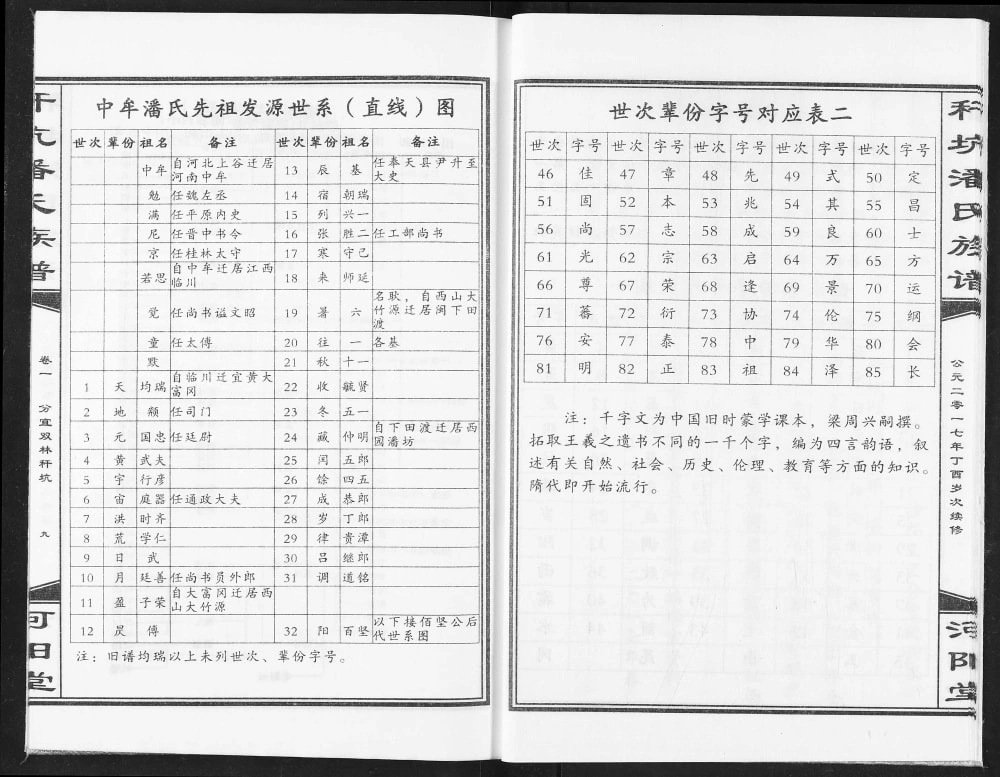 中牟潘氏先祖发源世系（直线）图
世次 辈份 祖名 备注 世次 辈份 祖名 备注
中牟 自河北上谷迁居河南中牟 13 辰 基 任奉天县尹升至大史
勉 任魏左丞 14 宿 朝瑞
满 任平原内史 15 列 兴一
尼 任晋中书令 16 张 胜二 任工部尚书
京 任桂林太守 17 寒 守己
若思 自中牟迁居江西临川 18 来 师延
觉 任尚书谥文昭 19 暑 六 名耿，自西山大竹源迁居闽下田渡
童 任太傅 20 往 一 各基
默 21 秋 十一
1 天 均瑞 自临川迁宜黄大富冈 22 收 毓贤
2 地 颙 任司门 23 冬 五一
3 元 国忠 任廷尉 24 藏 仲明 自下田渡迁居西园潘坊
4 黄 武夫 25 闰 五郎
5 宇 行彦 26 馀 四五
6 宙 庭器 任通政大夫 27 成 恭郎
7 洪 时齐 28 岁 丁郎
8 荒 学仁 29 律 贵潭
9 日 武 30 吕 继郎
10 月 廷善 任尚书员外郎 31 调 道铭
11 盈 子荣 自大富冈迁居西山大竹源
12 昃 傅 32 阳 百坚 以下接佰坚公后代世系图
注：旧谱均瑞以上未列世次、辈份字号。
卷一
分宜双林秆坑
九
世次辈份字号对应表二
世次 字号 世次 字号 世次 字号 世次 字号 世次 字号
46 佳 47 章 48 先 49 式 50 定
51 固 52 本 53 兆 54 其 55 昌
56 尚 57 志 58 成 59 良 60 士
61 光 62 宗 63 启 64 万 65 方
66 尊 67 荣 68 逢 69 景 70 运
71 蕃 72 衍 73 协 74 伦 75 纲
76 安 77 泰 78 中 79 华 80 会
81 明 82 正 83 祖 84 泽 85 长
注：千字文为中国旧时蒙学课本，梁周兴嗣撰。
拓取王羲之遗书不同的一千个字，编为四言韵语，叙
述有关自然、社会、历史、伦理、教育等方面的知识。
隋代即开始流行。
秆坑潘氏族谱
公元二零一七年丁酉岁次续修
河阳堂